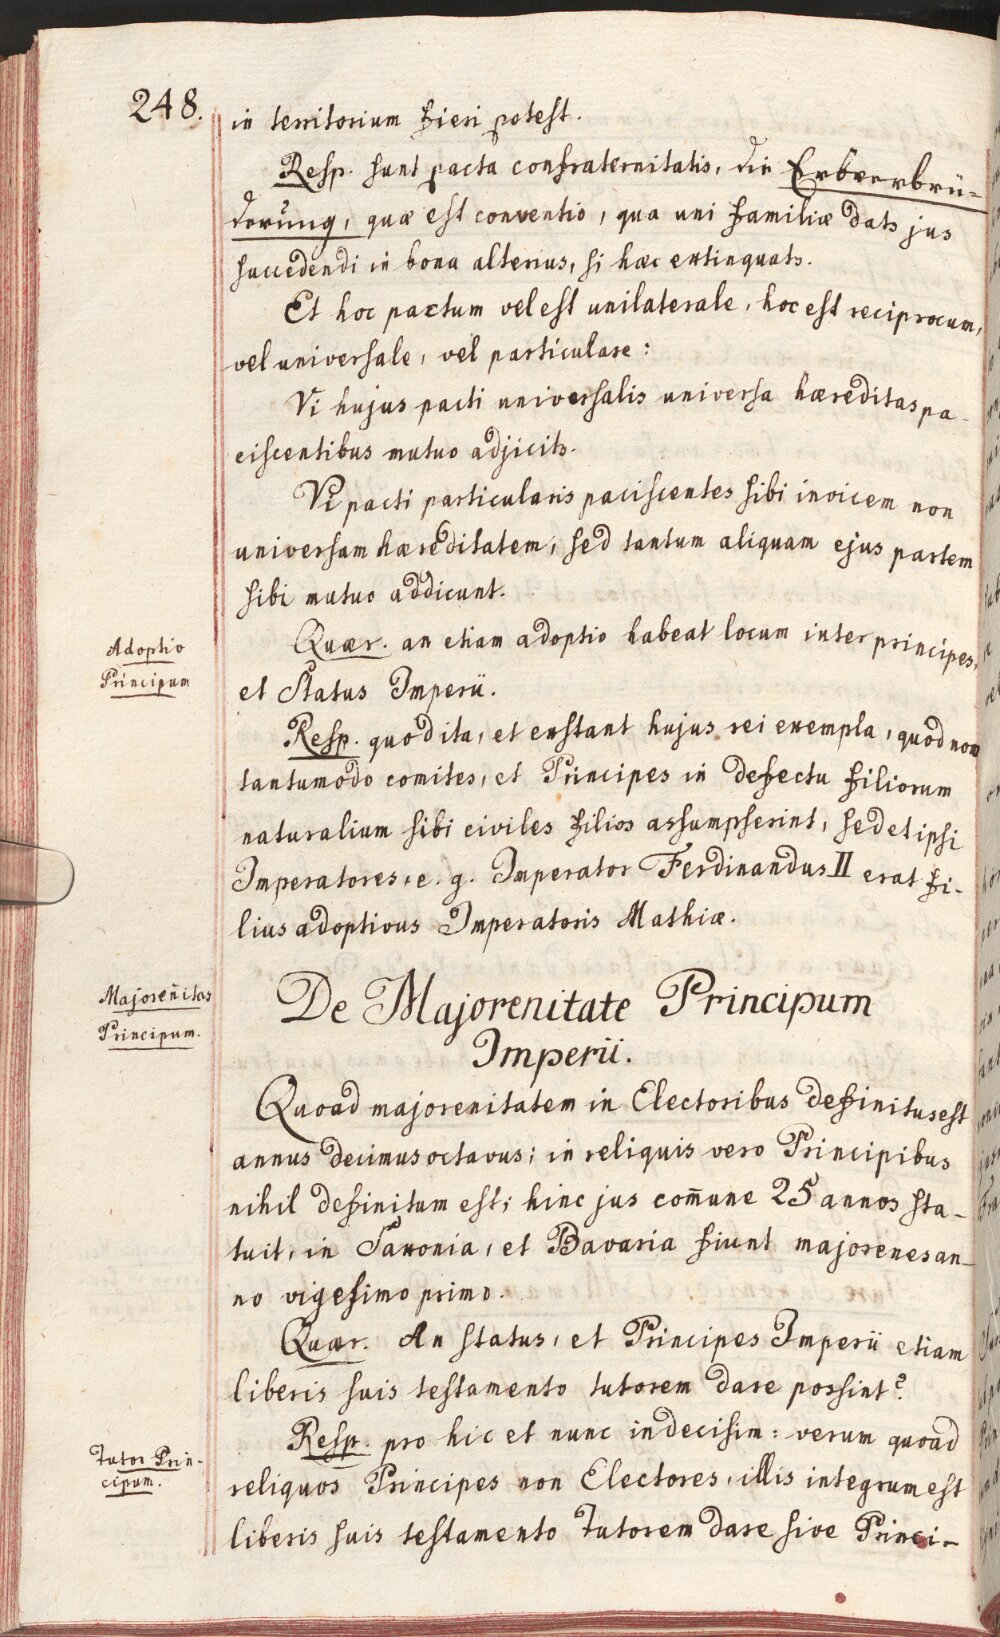 248.
in territorium fieri potest.
Resp. sunt pacta confraternitatis, die Erbverbrü-
derung, quæ est conventio, qua uni familiæ datr jus
succedendi in bona alterius, si hæc extinquatr.
Et hoc pactum vel est unilaterale, hoc est reciprocum,
vel universale, vel particulare:
Vi hujus pacti universalis universa hæreditas pa-
ciscentibus mutuo adjicitr.
Vi pacti particularis paciscentes sibi invicem non
universam hæreditatem, sed tantum aliquam ejus partem
sibi mutuo addicunt.
Adoptio
Principum
Quær. an etiam adoptio habeat locum inter principes,
et Status Imperii.
Resp. quod ita, et exstant hujus rei exempla, quod non
tantumodo comites, et Principes in defectu filiorum
naturalium sibi civiles filios assumpserint, sed et ipsi
Imperatores, e. g. Imperator Ferdinandus II erat fi-
lius adoptivus Imperatoris Mathiæ.
Majoren̄itas
Principum.
De Majorenitate Principum
Imperii.
Quoad majorenitatem in Electoribus definitus est
annus decimus octavus; in reliquis vero Principibus
nihil definitum est; hinc jus com̄une 25 annos sta-
tuit, in Saxonia, et Bavaria fiunt majorenes an-
no vigesimo primo.
Quær. An status, et Principes Imperii etiam
liberis suis testamento tutorem dare possint?
Tutor Prin-
cipum.
Resp. pro hic et nunc indecisim: verum quoad
reliquos Principes non Electores, illis integrum est
liberis suis testamento Tutorem dare sive Princi-